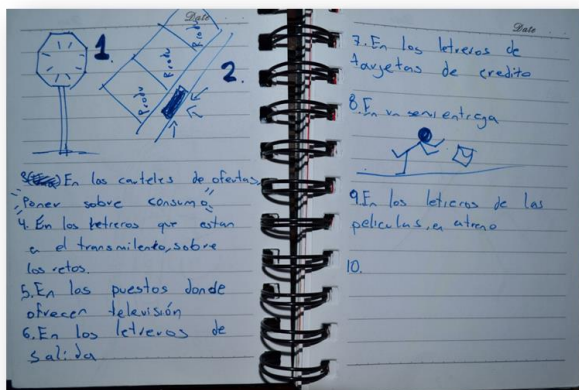 Date
1.
2.
Produ
Produ
Produ
3. En los carteles de ofertas,
Poner sobre consumo
4. En los letreros que estan
en el transmilenio, sobre
los retos.
5. En los puestos donde
ofrecen televisión
6. En los letreros de
salida
Date
7. En los letreros de
tarjetas de credito
8. En un servientrega
9. En los letreros de las
peliculas, en
10.